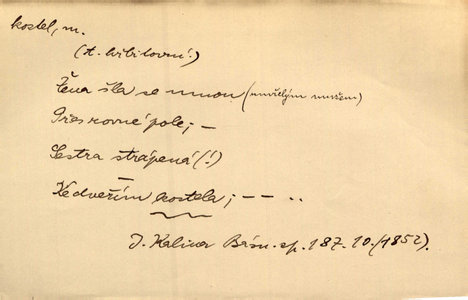 kostel, m.
(t. hřbitovní.)
Žena šla se mnou (umrlým mužem)
Přes rovné pole; —
Sestra strápená (!)
Ke dveřím kostela; — — ..
J. Kalina Básn. sp. 187. 10. (1852).